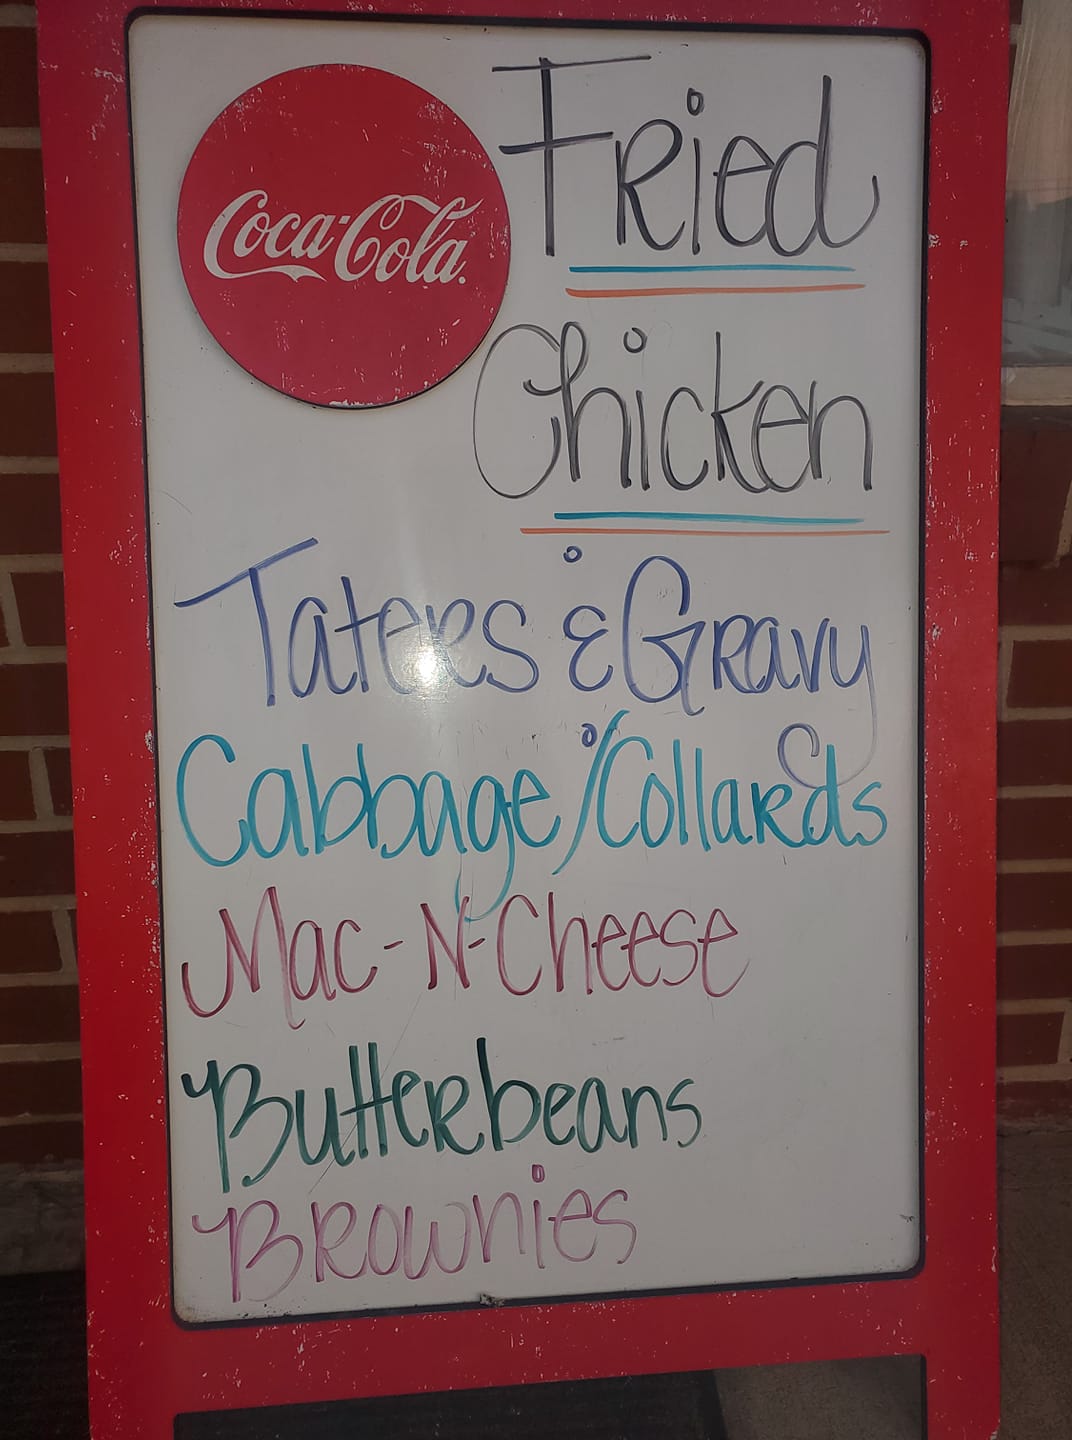 Coca-Cola
Fried
Chicken
Taters & Gravy
Cabbage/Collards
Mac-N-Cheese
Butterbeans
Brownies